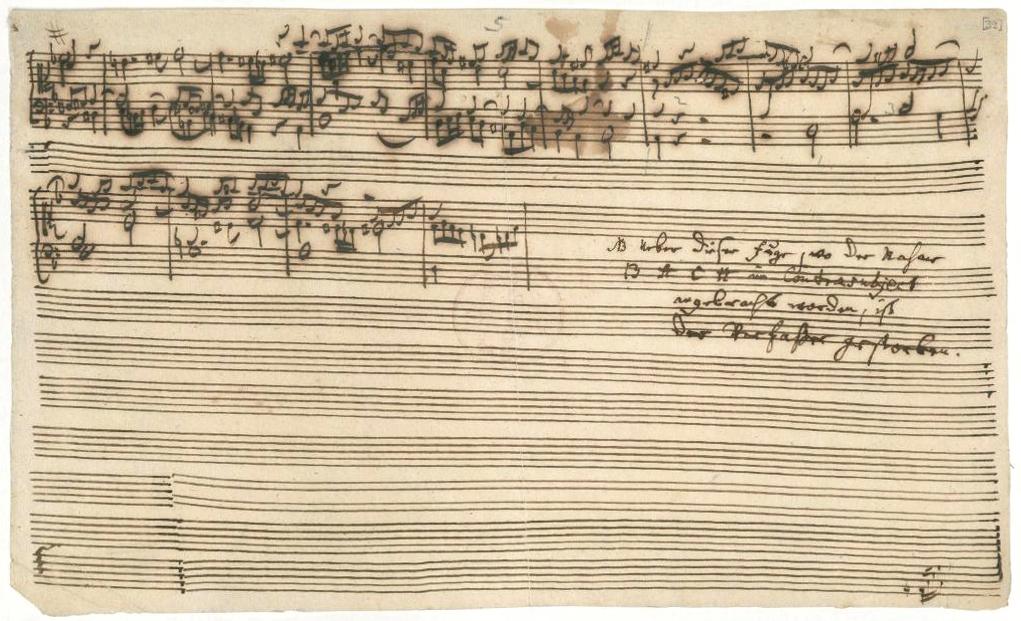 5
[32]
2
3
NB Ueber dieser Fuge, wo der Nahme
B A C H im Contrasubject
angebracht worden, ist
der Verfaßer gestorben.